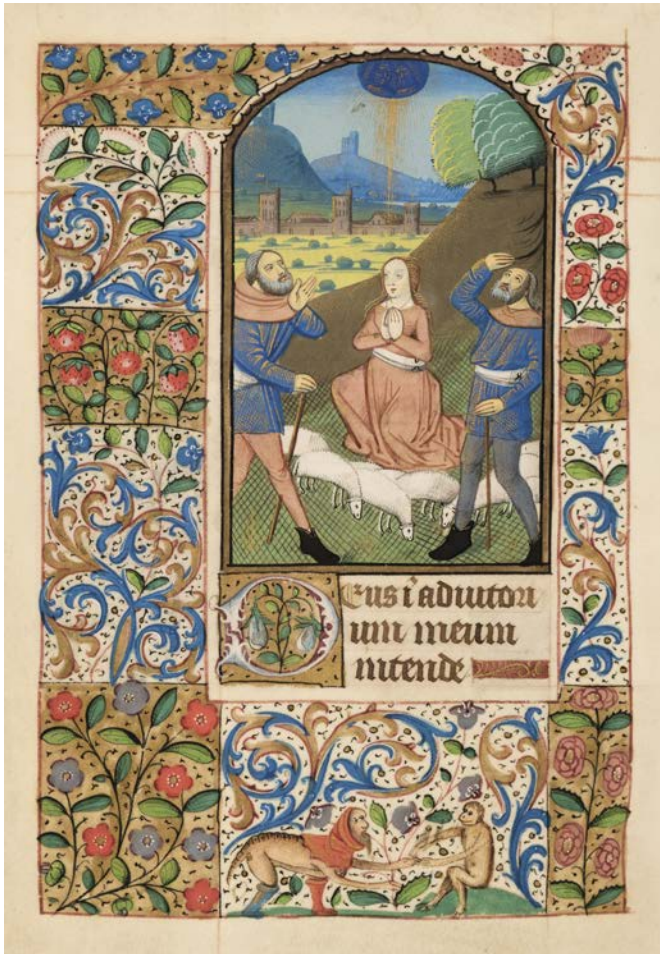 Deus ī adiutori
um meum
intende